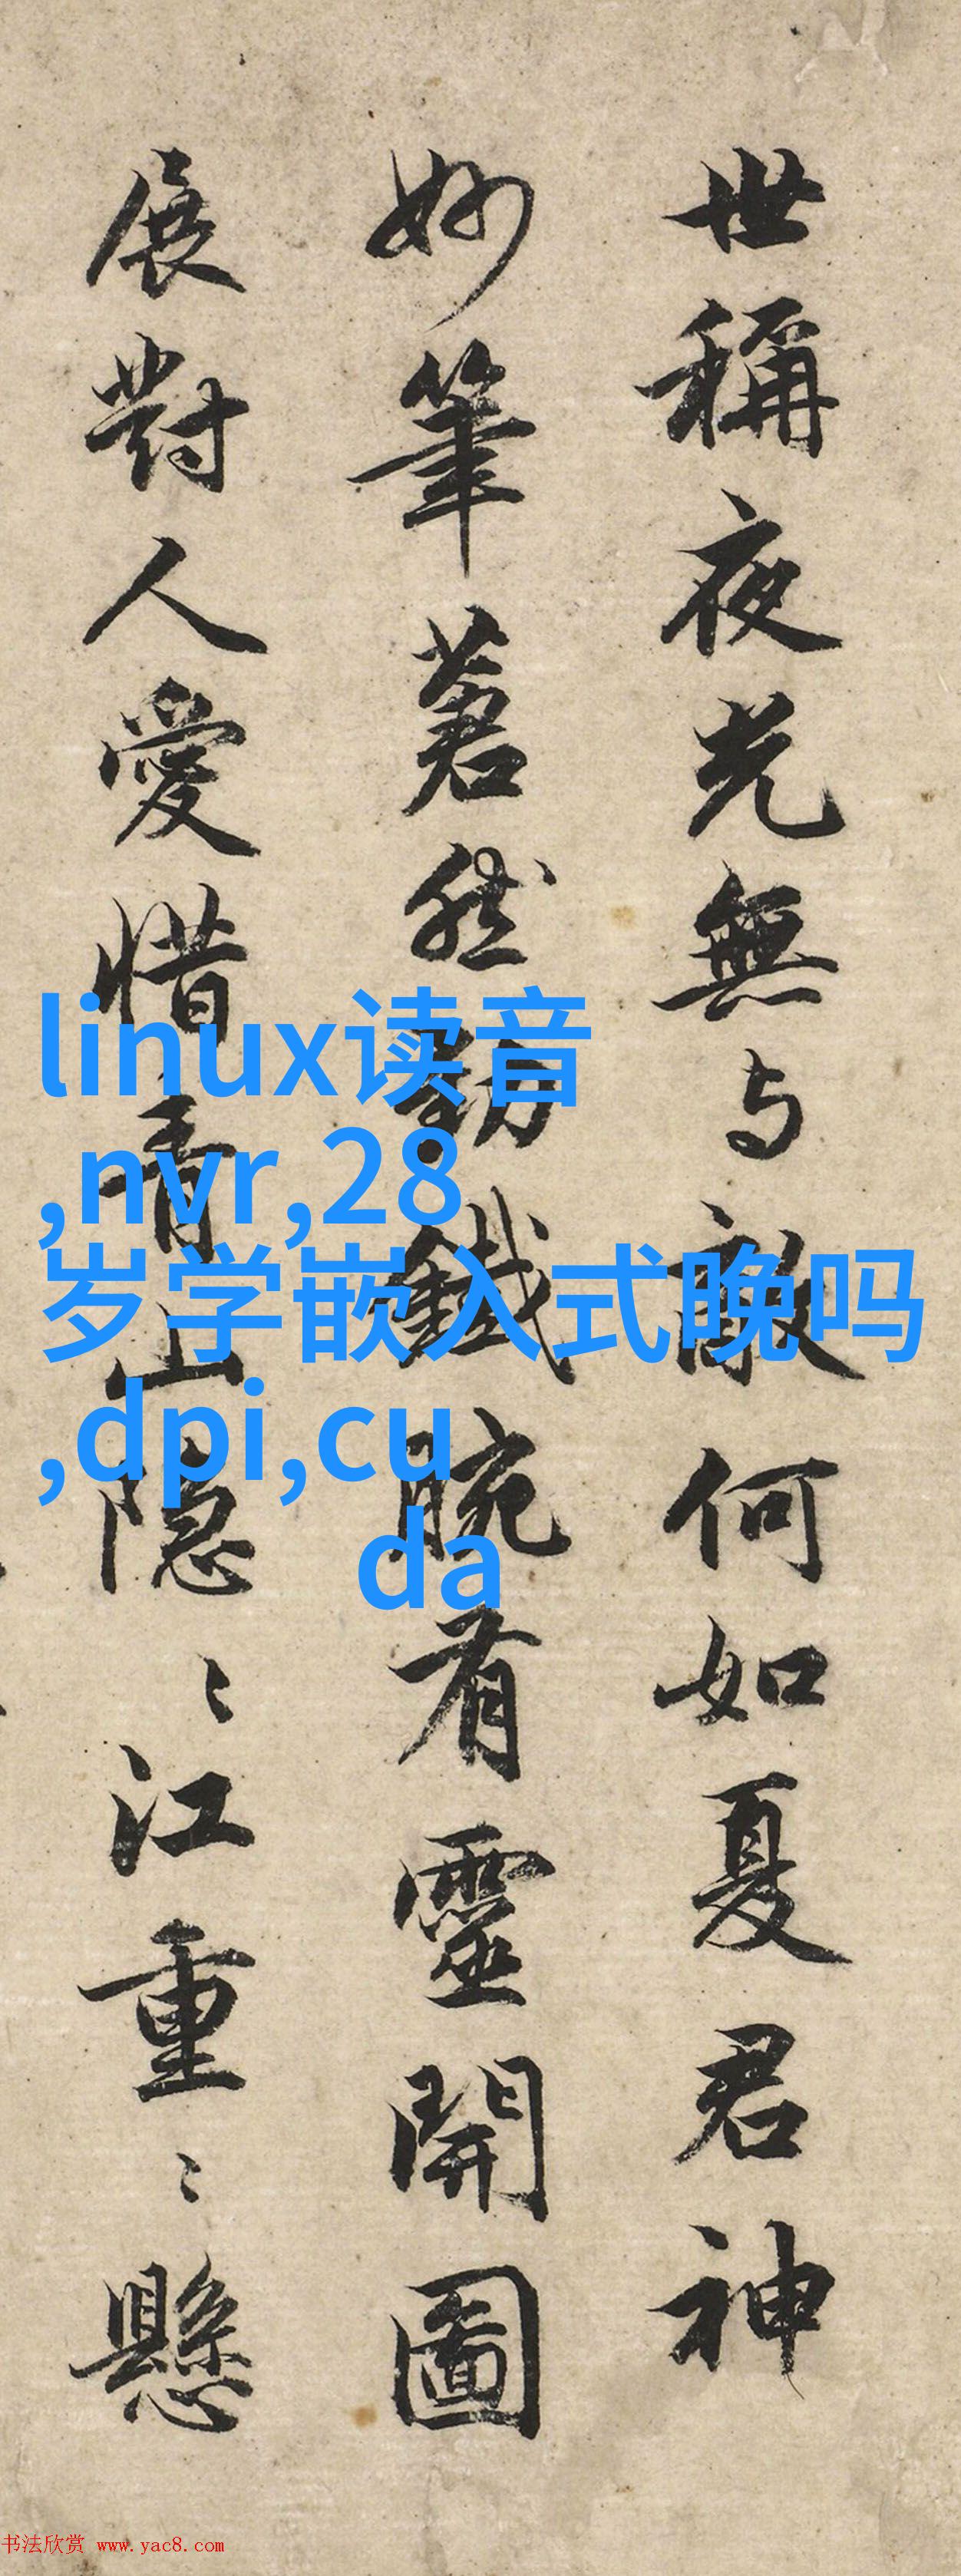 世稱夜光無与敵何如夏君神
妙筆著然鋼鐵腕有靈開圖
展對人愛惜青山隐〻江重〻懸
linux读音
,nvr,28
岁学嵌入式晚吗
,dpi,cu
da
书法欣赏 www.yac8.com